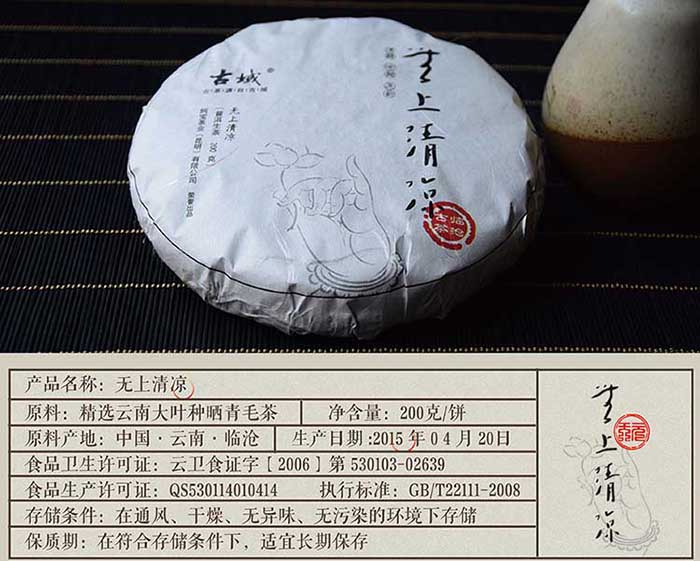 古域®
古茶源自古域
无上清凉
无上清凉
临沧
古茶
产品名称：无上清凉
原料：精选云南大叶种晒青毛茶
净含量：200克/饼
原料产地：中国·云南·临沧
生产日期:2015年04月20日
食品卫生许可证：云卫食证字［2006］第530103-02639
食品生产许可证：QS530114010414
执行标准：GB/T22111-2008
存储条件：在通风、干燥、无异味、无污染的环境下存储
保质期：在符合存储条件下，适宜长期保存
无上清凉